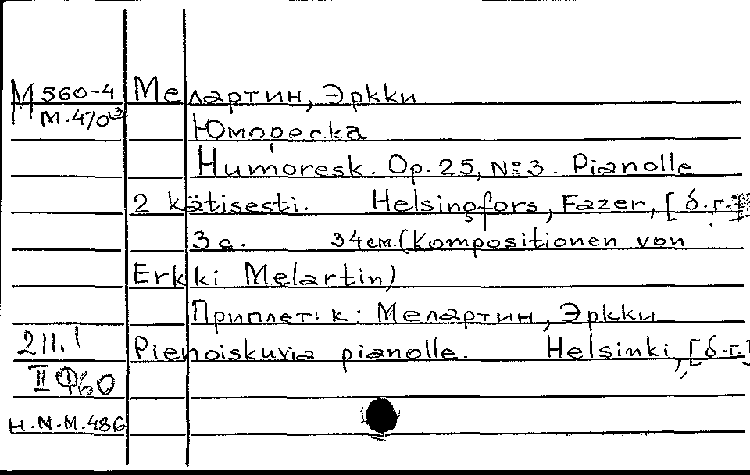 М 560-4 Мелартин, Эркки
М.470³
Юмореска
Humoresk. Op. 25, №3. Pianolle
2 kätisesti. Helsingfors, Fazer, [б.г.]
3 с. 34 см. (Kompositionen von
Erkki Melartin)
Приплет. к: Мелартин, Эркки
211.1 Pienoiskuvia pianolle. Helsinki, [б.г.]
II
H.N.M.486